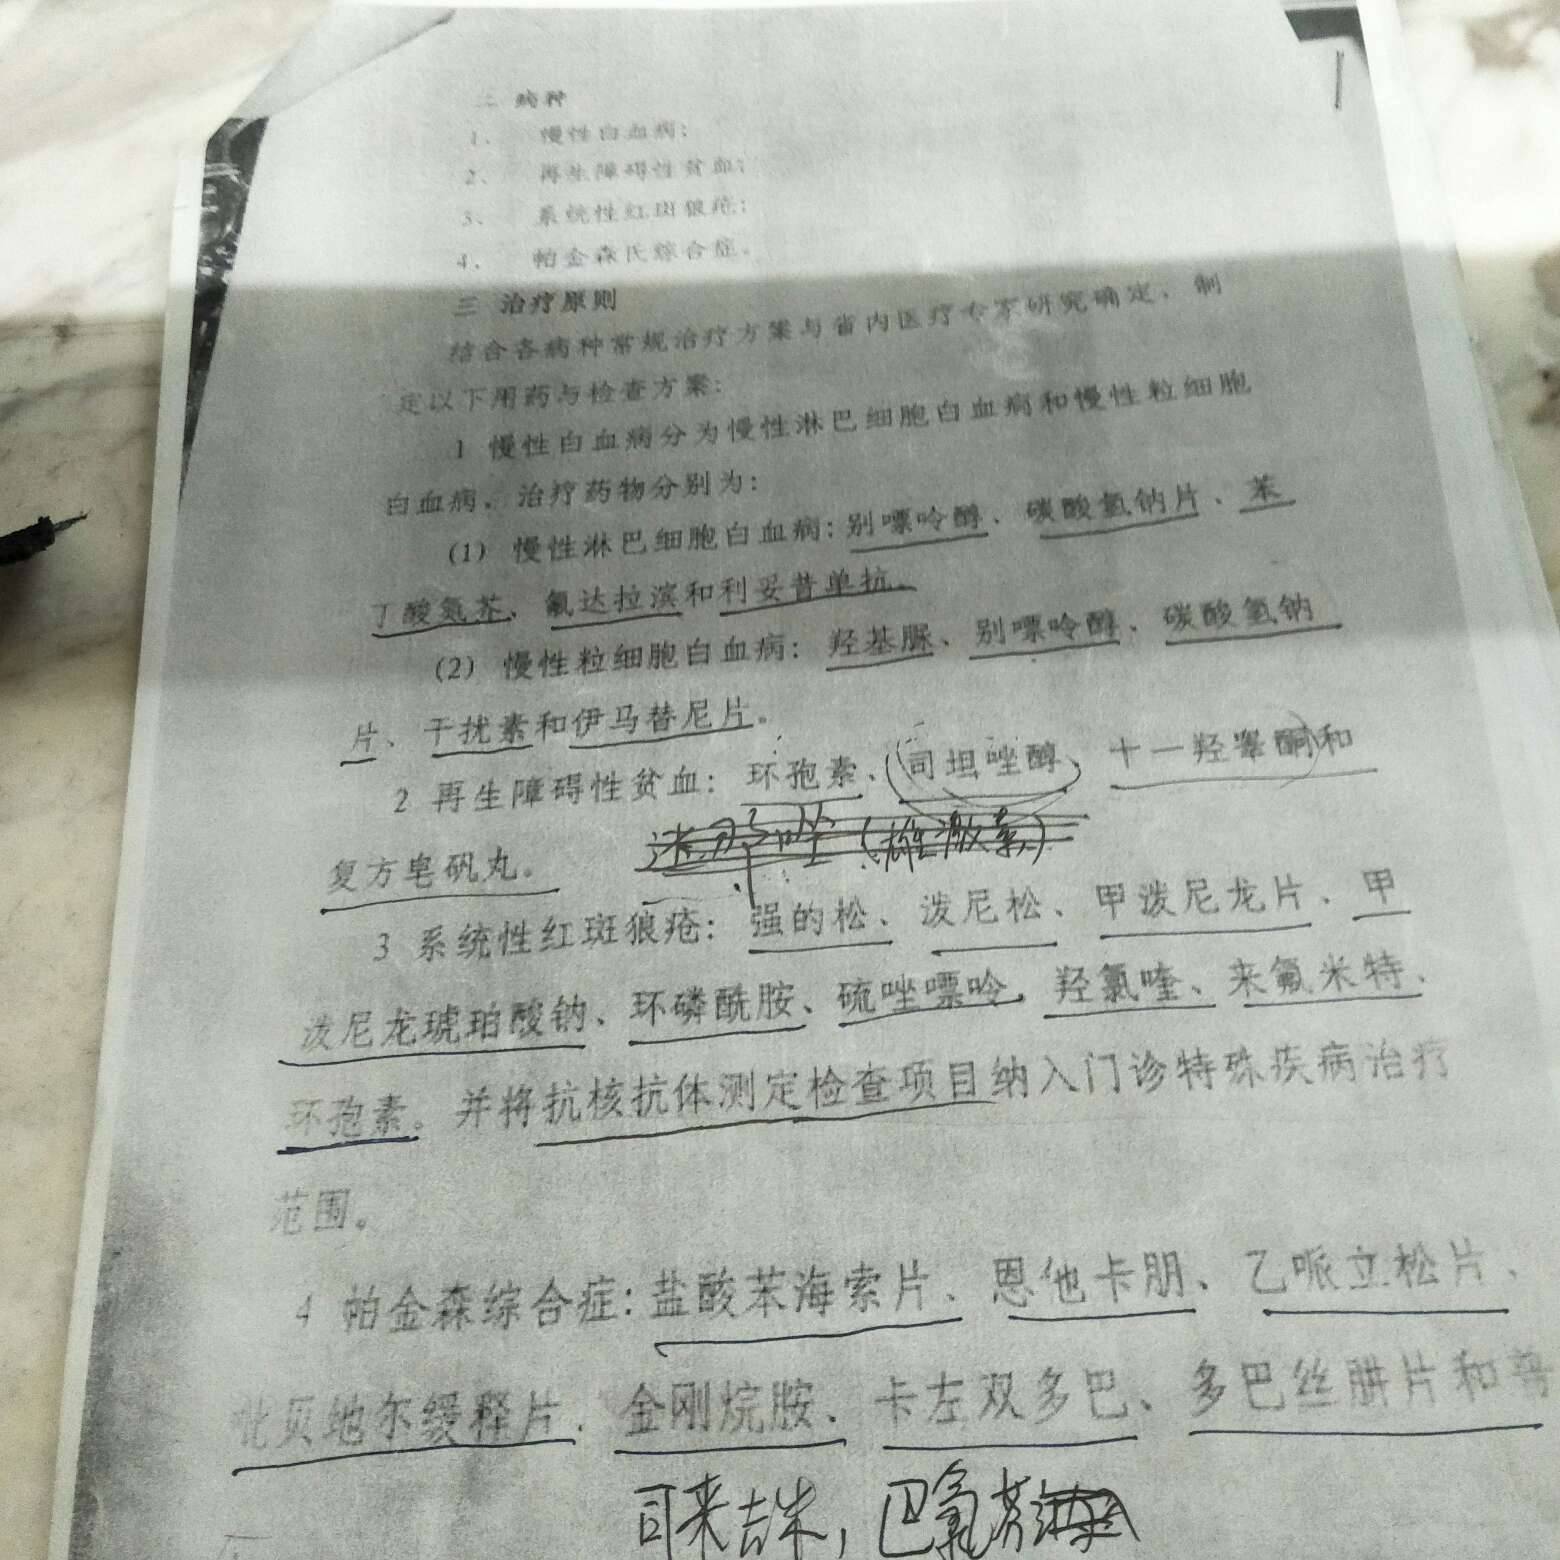 二 病种
1、 慢性白血病；
2、 再生障碍性贫血；
3、 系统性红斑狼疮；
4、 帕金森氏综合症。
三 治疗原则
结合各病种常规治疗方案与省内医疗专家研究确定，制
定以下用药与检查方案：
1 慢性白血病分为慢性淋巴细胞白血病和慢性粒细胞
白血病，治疗药物分别为：
（1） 慢性淋巴细胞白血病：别嘌呤醇、碳酸氢钠片、苯
丁酸氮芥、氟达拉滨和利妥昔单抗。
（2） 慢性粒细胞白血病：羟基脲、别嘌呤醇、碳酸氢钠
片、干扰素和伊马替尼片。
2 再生障碍性贫血：环孢素、司坦唑醇、十一羟睾酮和
（雄激素）
复方皂矾丸。
3 系统性红斑狼疮：强的松、泼尼松、甲泼尼龙片、甲
泼尼龙琥珀酸钠、环磷酰胺、硫唑嘌呤，羟氯喹、来氟米特、
环孢素。并将抗核抗体测定检查项目纳入门诊特殊疾病治疗
范围。
4 帕金森综合症：盐酸苯海索片、恩他卡朋、乙哌立松片、
吡贝地尔缓释片、金刚烷胺、卡左双多巴、多巴丝肼片和普
司来吉米，巴氯芬